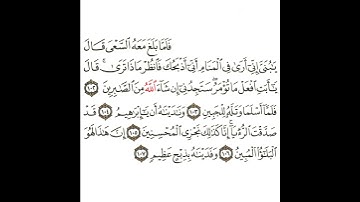 فَلَمَّا بَلَغَ مَعَهُ ٱلسَّعْىَ قَالَ
يَٰبُنَىَّ إِنِّىٓ أَرَىٰ فِى ٱلْمَنَامِ أَنِّىٓ أَذْبَحُكَ فَٱنظُرْ مَاذَا تَرَىٰ ۚ قَالَ
يَٰٓأَبَتِ ٱفْعَلْ مَا تُؤْمَرُ ۖ سَتَجِدُنِىٓ إِن شَآءَ ٱللَّهُ مِنَ ٱلصَّٰبِرِينَ ١٠٢
فَلَمَّآ أَسْلَمَا وَتَلَّهُۥ لِلْجَبِينِ ١٠٣ وَنَٰدَيْنَٰهُ أَن يَٰٓإِبْرَٰهِيمُ ١٠٤ قَدْ
صَدَّقْتَ ٱلرُّءْيَآ ۚ إِنَّا كَذَٰلِكَ نَجْزِى ٱلْمُحْسِنِينَ ١٠٥ إِنَّ هَٰذَا لَهُوَ
ٱلْبَلَٰٓؤُا۟ ٱلْمُبِينُ ١٠٦ وَفَدَيْنَٰهُ بِذِبْحٍ عَظِيمٍ ١٠٧